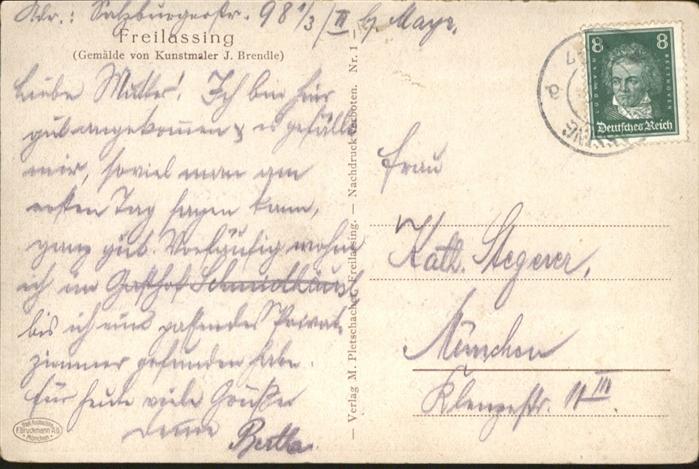 Adr.: Salzburgerstr. 98 1/3 / II b/ Mayr.
Freilassing
(Gemälde von Kunstmaler J. Brendle)
Liebe Mutter! Ich bin hier
gut angekommen & es gefällt
mir, soviel man am
ersten Tag sagen kann,
ganz gut. Vorläufig wohne
ich im Gasthof Schmidhäusl
bis ich ein passendes Privat-
zimmer gefunden habe.
Für heute viele Grüße
Deine Bertha.
F. Bruckmann A.G.
München
— Verlag M. Pletschacher, Freilassing. — Nachdruck verboten. Nr. 1 —
8 8
LUDWIG VAN BEETHOVEN
Deutsches Reich
Frau
Kath. Stegerer,
München
Klenzestr. 11 III